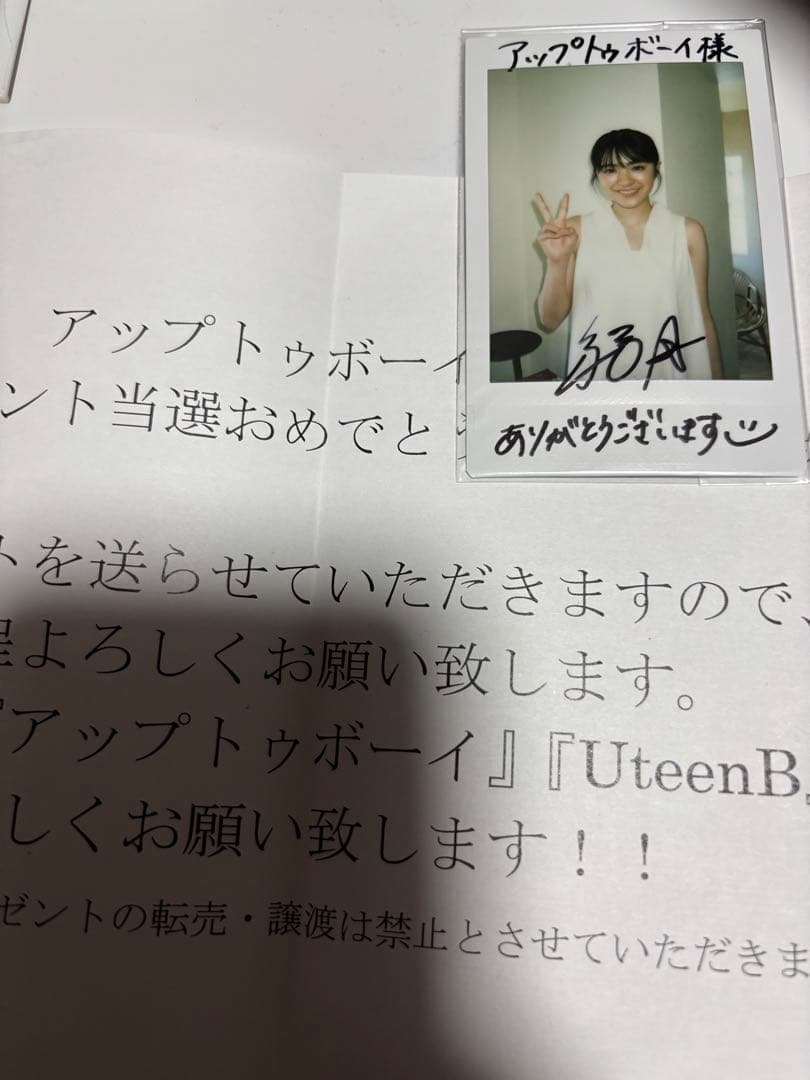 アップトゥボーイ様
ありがとうございます
アップトゥボーイ
ント当選おめでと
トを送らせていただきますので、
よろしくお願い致します。
『アップトゥボーイ』『UteenB』
しくお願い致します！！
ゼントの転売・譲渡は禁止とさせていただきま